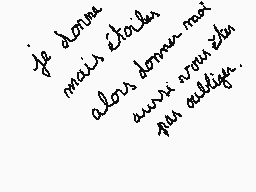 je donne
mais étoiles
alors donner moi
aussi vous êtes
pas oubliger.